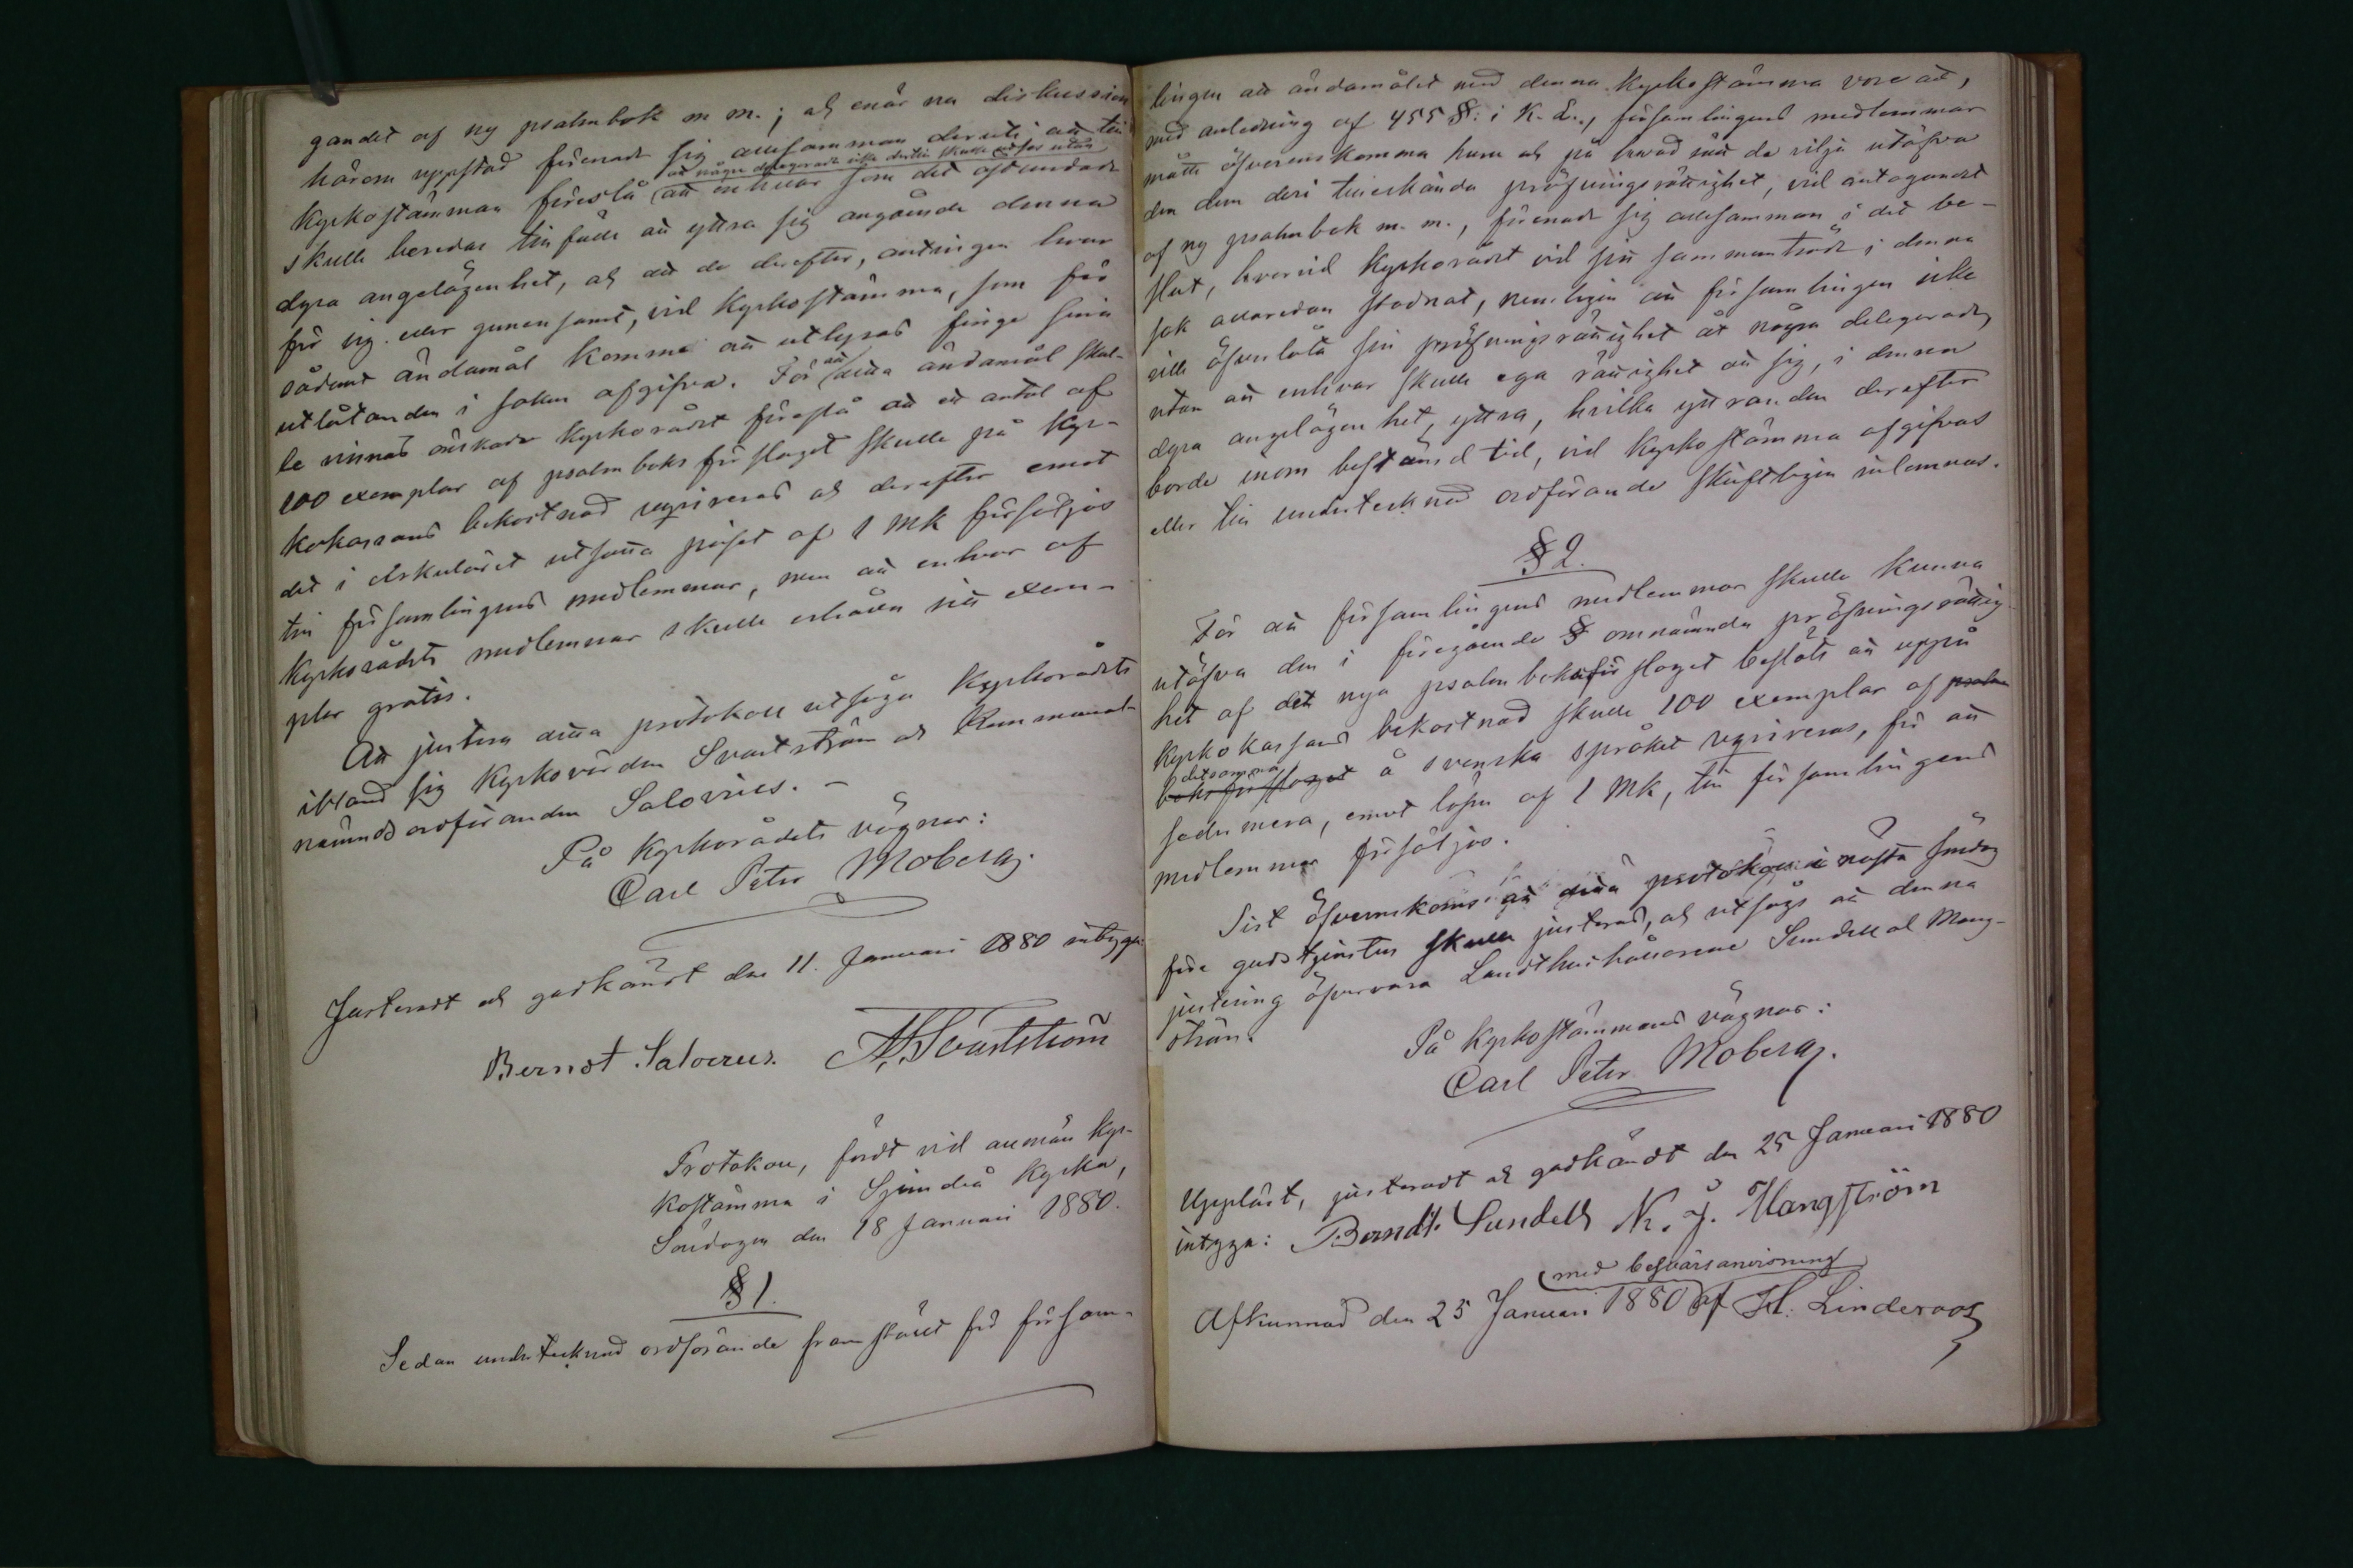 gandet af ny psalmbok m m.; och enär nu diskussion
härom uppstod förenade sig allesamman deruti, att till
att några delegerade icke dertill skulle utses utan
Kyrkostämman föreslå att enhvar som det åstundade
skulle beredas tillfälle att yttra sig angående denna
dyra angelägenhet, och att de derefter, antingen hvar
för sig eller gemensamt, vid Kyrkostämma, som för
sådant ändamål komme att utlysas finge sina
utlåtanden i saken afgifva. För att detta ändamål skul-
le vinnas önskade Kyrkorådet föreslå att ett antal af
100 exemplar af psalmboks förslaget skulle på Kyr-
kokassans bekostnad reqvireras och derefter emot
det i cirkuläret utsatta priset af 1 Mk försäljas
till församlingens medlemmar, men att enhvar af
Kyrkorådets medlemmar skulle erhålla sitt exem-
plar gratis.
Att justera detta protokoll utsågo Kyrkorådets
ibland sig Kyrkovärden Svartström och Kommunal-
nämndsordföranden Salovius. -
På Kyrkorådets vägnar:
Carl Peter Moberg.
Justeradt och godkändt den 11. Januari 1880 intyga:
Berndt Salovius. A. Svartström
Protokoll, fördt vid allmän Kyr-
kostämma i Sjundeå Kyrka,
Söndagen den 18 Januari 1880.
§ 1.
Sedan undertecknad ordförande framställt för försam-
lingen att ändamålet med denna Kyrkostämma vore att,
med anledning af 455 §: i K. L., församlingens medlemmar
måtte öfverenskomma huru och på hvad sätt de vilja utöfva
den dem deri tillerkända pröfningsrättighet, vid antagandet
af ny psalmbok m. m., förenade sig allesamman i det be-
slut, hvarvid Kyrkorådet vid sitt sammanträde i denna
sak allaredan stadnat, nemligen att församlingen icke
ville öfverlåta sin pröfningsrättighet åt några delegerade,
utan att enhvar skulle ega rättighet att sig, i denna
dyra angelägenhet, yttra, hvilka yttranden derefter
borde inom bestämd tid, vid Kyrkostämma afgifvas
eller till undertecknad ordförande skriftligen inlemnas.
§ 2.
För att församlingens medlemmar skulle kunna
utöfva den i föregående § omnämnda pröfningsrättig-
het af det nya psalmboksförslaget beslöts att uppå
Kyrkokassans bekostnad skulle 100 exemplar af psalm
detsamma
boksförslaget å svenska språket reqvireras, för att
sedermera, emot lösen af 1 Mk, till församlingens
medlemmar försäljas.
Sist öfverenskoms att detta protokoll nästa söndag
före gudstjensten skulle justeras, och utsågs att denna
justering öfvervara Landthushållarene Sundell och Mang-
ström.
På Kyrkostämmans vägnar:
Carl Peter Moberg.
Uppläst, justeradt och godkändt den 25 Januari 1880
intyga: Berndt Sundell N. J. Mangström
med besvärsanvisning
Afkunnad den 25 Januari 1880 af H. Linderoos